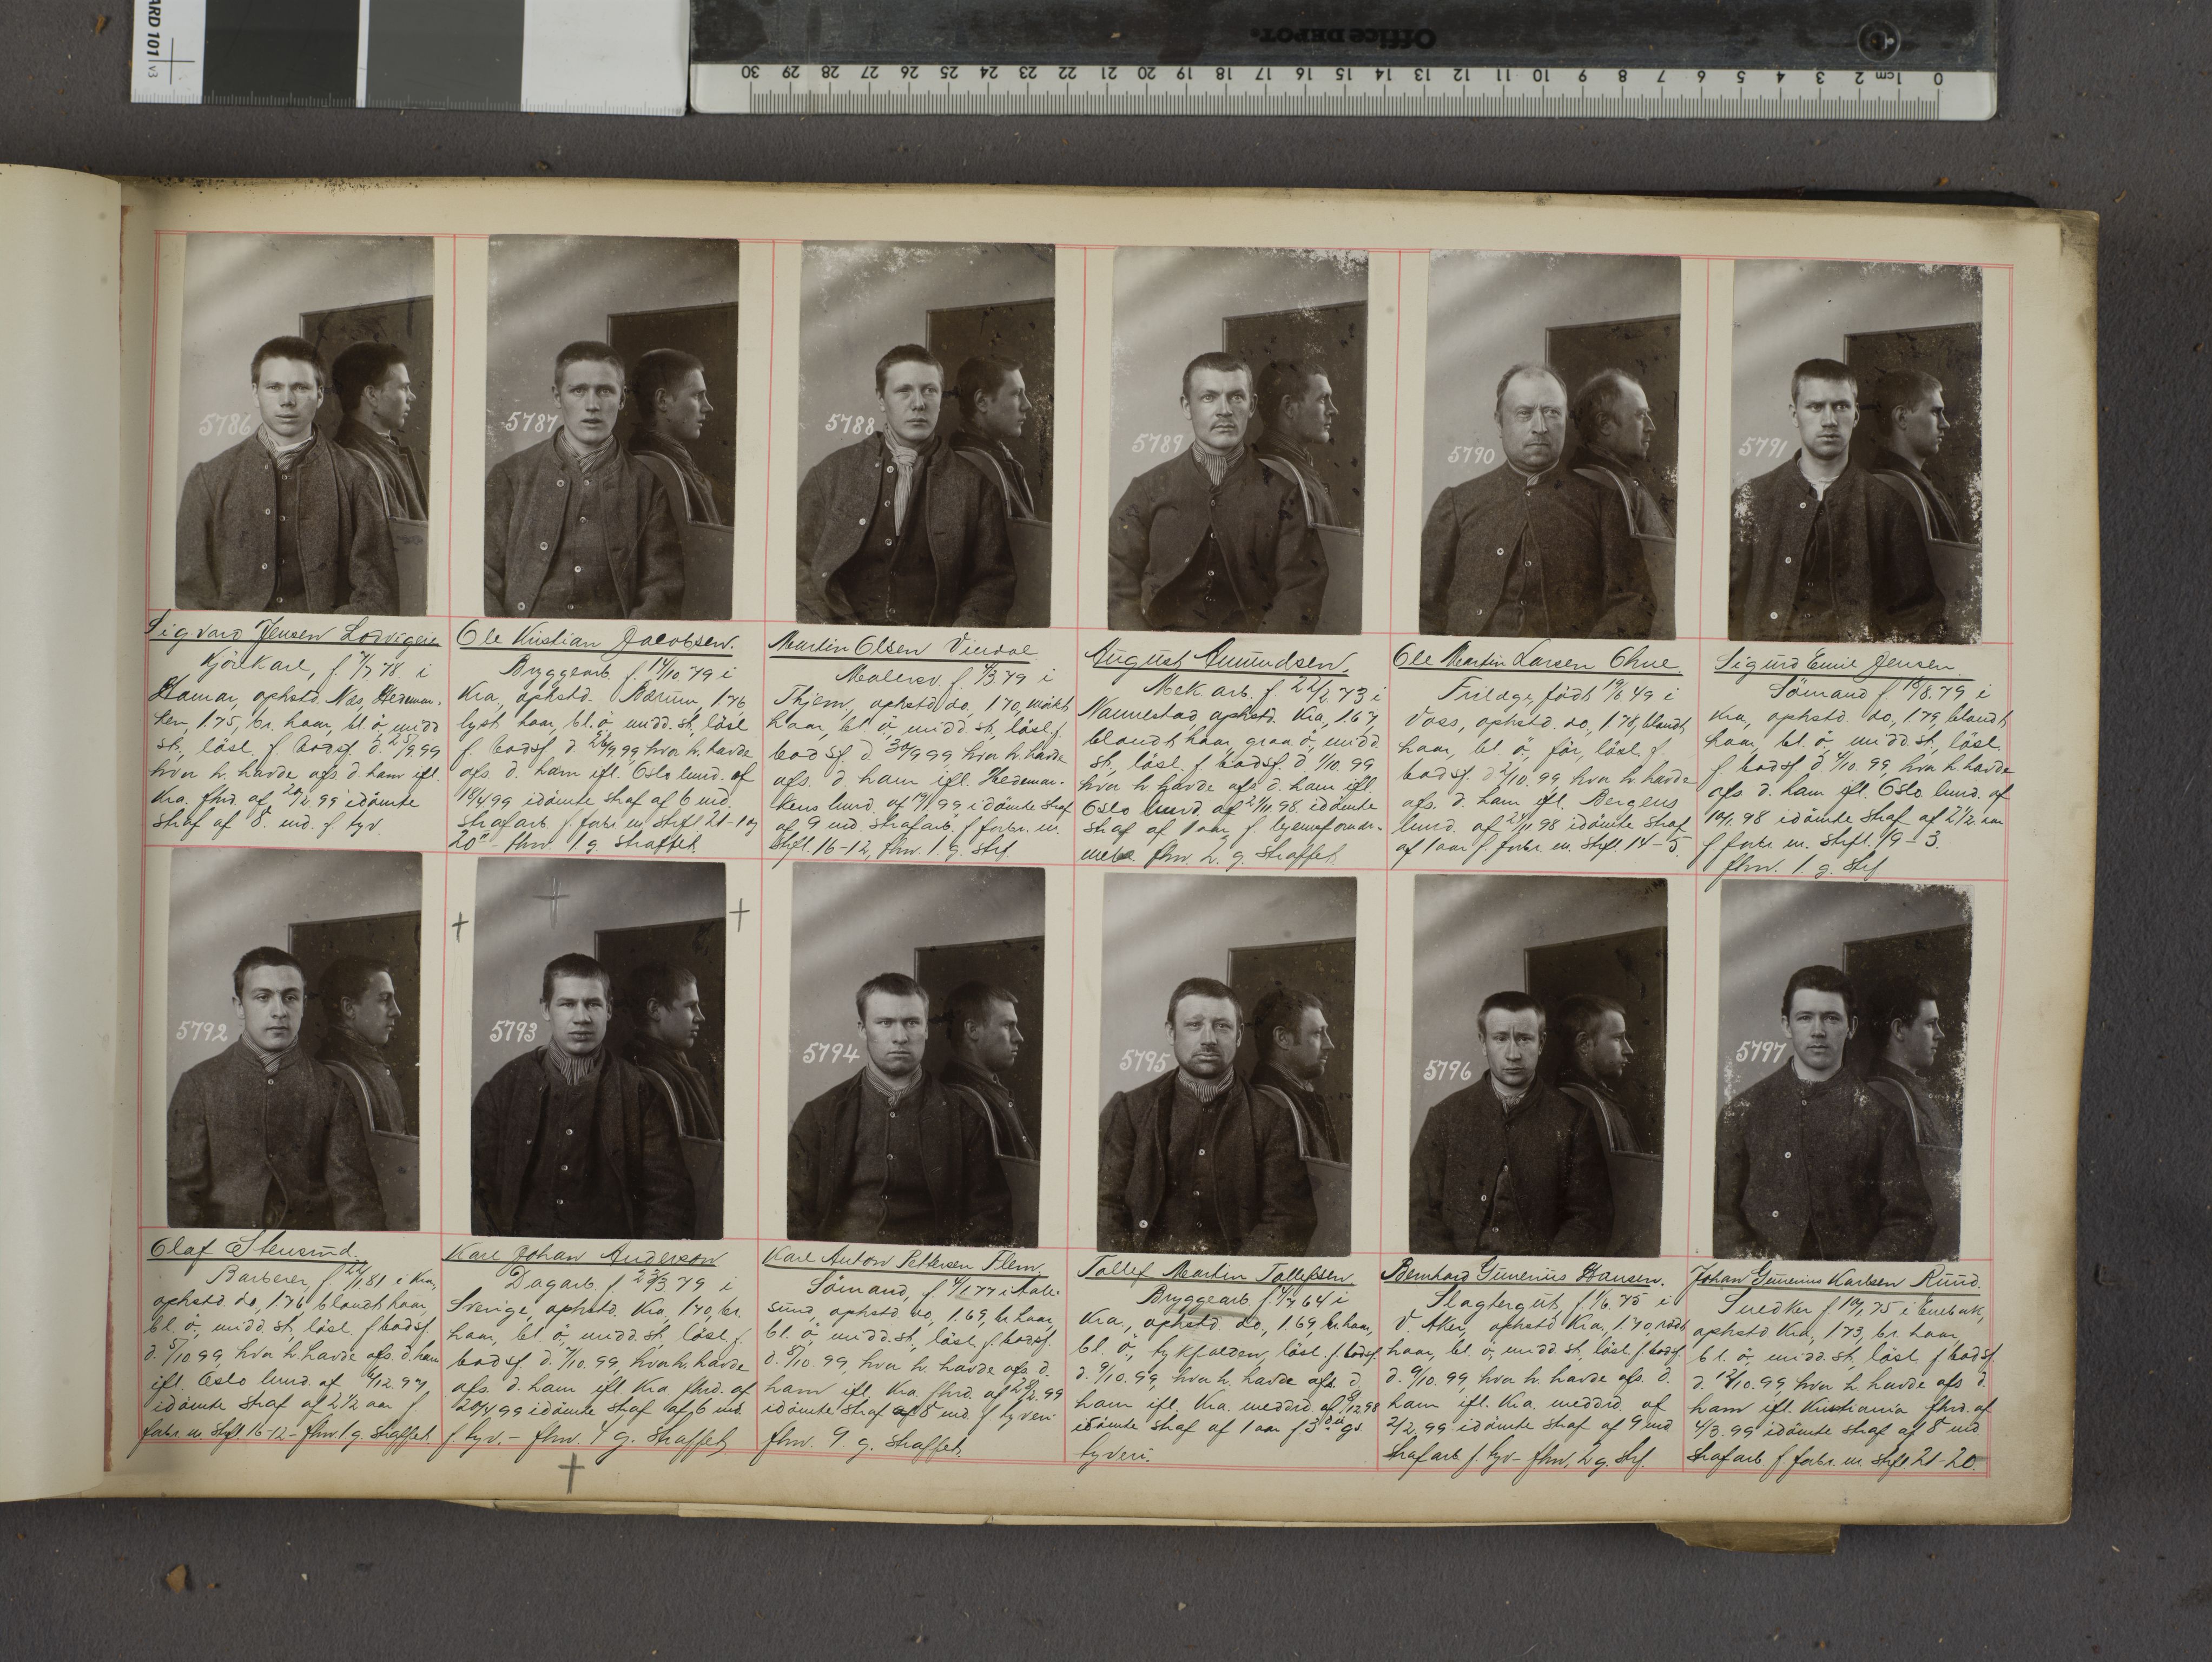 ARD 101 v3
Office DEPOT
30 29 28 27 26 25 24 23 22 21 20 19 18 17 16 15 14 13 12 11 10 9 8 7 6 5 4 3 2 1cm 0
5786
Sigvard Jensen Lodvigeie
Kjörekarl, f. 7/7 78. i
Hamar, ophstd. Næs, Hedemar-
ken, 1.75, br. haar, bl. ö, midd
st., løsl. f. bodsf. d. 25/9 99
hvor h. havde afs. d. ham ifl.
Kra. fhrd. af 20/2 99 idömte
straf af 8 md. f. tyv.
5787
Ole Kristian Jacobsen.
Bryggearb. f. 14/10 79 i
Kra, ophstd. Bærum, 1.76
lyst haar, bl. ö. midd. st., lösl
f. bodsf. d. 26/9 99, hvor h. havde
afs. d. ham ifl. Oslo lmd. af
18/4 99 idömte straf af 6 md.
strafarb. f. forbr. m. strfl. 21-1 og
20 - fhw. 1 g. straffet.
5788
Martin Olsen Vindal
Malersv. f. 4/3 79 i
Thjem, ophstd do, 170, mörkt
haar, bl. ö, midd. st., lösl. f.
bodsf. d. 30/9 99, hvor h. havde
afs. d. ham ifl. Hedemar-
kens lmd. af 19/1 99 idömte straf
af 9 md. strafarb. f. forbr. m.
strfl. 16-12, fhw. 1 g. strf.
5789
August Amundsen.
Mek. arb. f. 22/2 73 i
Nannestad, ophstd. Kra, 1.67,
blondt haar, graa ö, midd.
st., lösl. f. bodsf. d. 1/10. 99
hvor h. havde afs. d. ham ifl.
Oslo lmd. af 21/11 98 idömte
straf af 1 aar f.
fhw. 2. g. straffet.
5790
Ole Martin Larsen Ohne
født 19/6 49 i
Voss, ophstd. do, 1.78, blondt
haar, bl. ö, för, lösl. f.
bodsf. d. 2/10. 99 hvor h. havde
afs. d. ham ifl. Bergens
lmd. af 24/11 98 idömte straf
af 1 aar f. forbr. m. strfl. 14-5.
5791
Sigurd Emil Jensen
Sömand f. 19/8. 79 i
Kra, ophstd. do, 1.79, blondt
haar, bl. ö, midd. st., lösl.
f. bodsf. d. 4/10. 99, hvor h. havde
afs d. ham ifl. Oslo lmd. af
10/1. 98 idömte straf af 2 1/2 aar
f. forbr. m. strfl. 19-3.
fhw. 1. g. strf.
5792
Olaf Stensrud.
Barberer, f. 22/1 81 i Kra,
ophstd. do, 1.76 blondt haar,
bl. ö, midd. st., lösl. f. bodsf.
d. 5/10 99, hvor h. havde afs. d. ham
ifl. Oslo lmd. af 6/12. 97
idömte straf af 2 1/2 aar f.
forbr. m. strfl. 16-12- fhw 1 g. straffet.
5793
Karl Johan Anderson
Dagarb. f. 23/3 79 i
Sverige, ophstd. Kra, 1.70, br.
haar, bl. ö, midd. st, lösl. f.
bodsf. d. 7/10. 99, hvor h. havde
afs. d. ham ifl. Kra fhrd. af
20/4 99 idömte straf af 6 md.
f. tyv.- fhw. 4 g. straffet
5794
Karl Anton Pettersen Flem.
Sömand, f. 4/1 77 i Aale-
sund, ophstd do, 1.69, br. haar,
bl. ö midd. st., lösl. f. bodsf.
d. 8/10. 99, hvor h. havde afs. d.
ham ifl. Kra. fhrd. af 28/2. 99
idömte straf af 8 md. f. tyveri
fhw. 9. g. straffet.
5795
Tollef Martin Tollefsen
Bryggearb. f. 4/7 64 i
Kra., ophstd do, 1.69, br. haar,
bl. ö, tykfalden, lösl. f. bodsf.
d. 9/10. 99, hvor h. havde afs. d.
ham ifl. Kra. meddrd. af 12 98
idömte straf af 1 aar f. 3die gs
tyveri.
5796
Bernhard Gunerius Hansen.
Slagtergut, f. 1/6. 75 i
V. Aker, ophstd Kra, 1.70, rödt
haar, bl. ö, midd. st, lösl f bodsf
d. 9/10. 99, hvor h. havde afs. d.
ham ifl. Kra. meddrd. af
2/2. 99 idömte straf af 9 md
strafarb f. tyv- fhw, 2 g. strf.
5797
Johan Gunerius Karlsen Rund.
Snedker f. 10/1 75 i Enebak,
ophstd Kra, 1.73, br. haar,
bl. ö, midd. st., lösl. f bodsf.
d. 12/10. 99, hvor h. havde afs d.
ham ifl. Kristiania fhrd. af
4/3. 99 idömte straf af 8 md
strafarb f forbr. m. strfl 21-20.